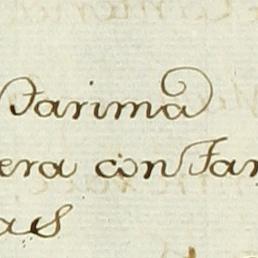 Tarima
era con Tar
as